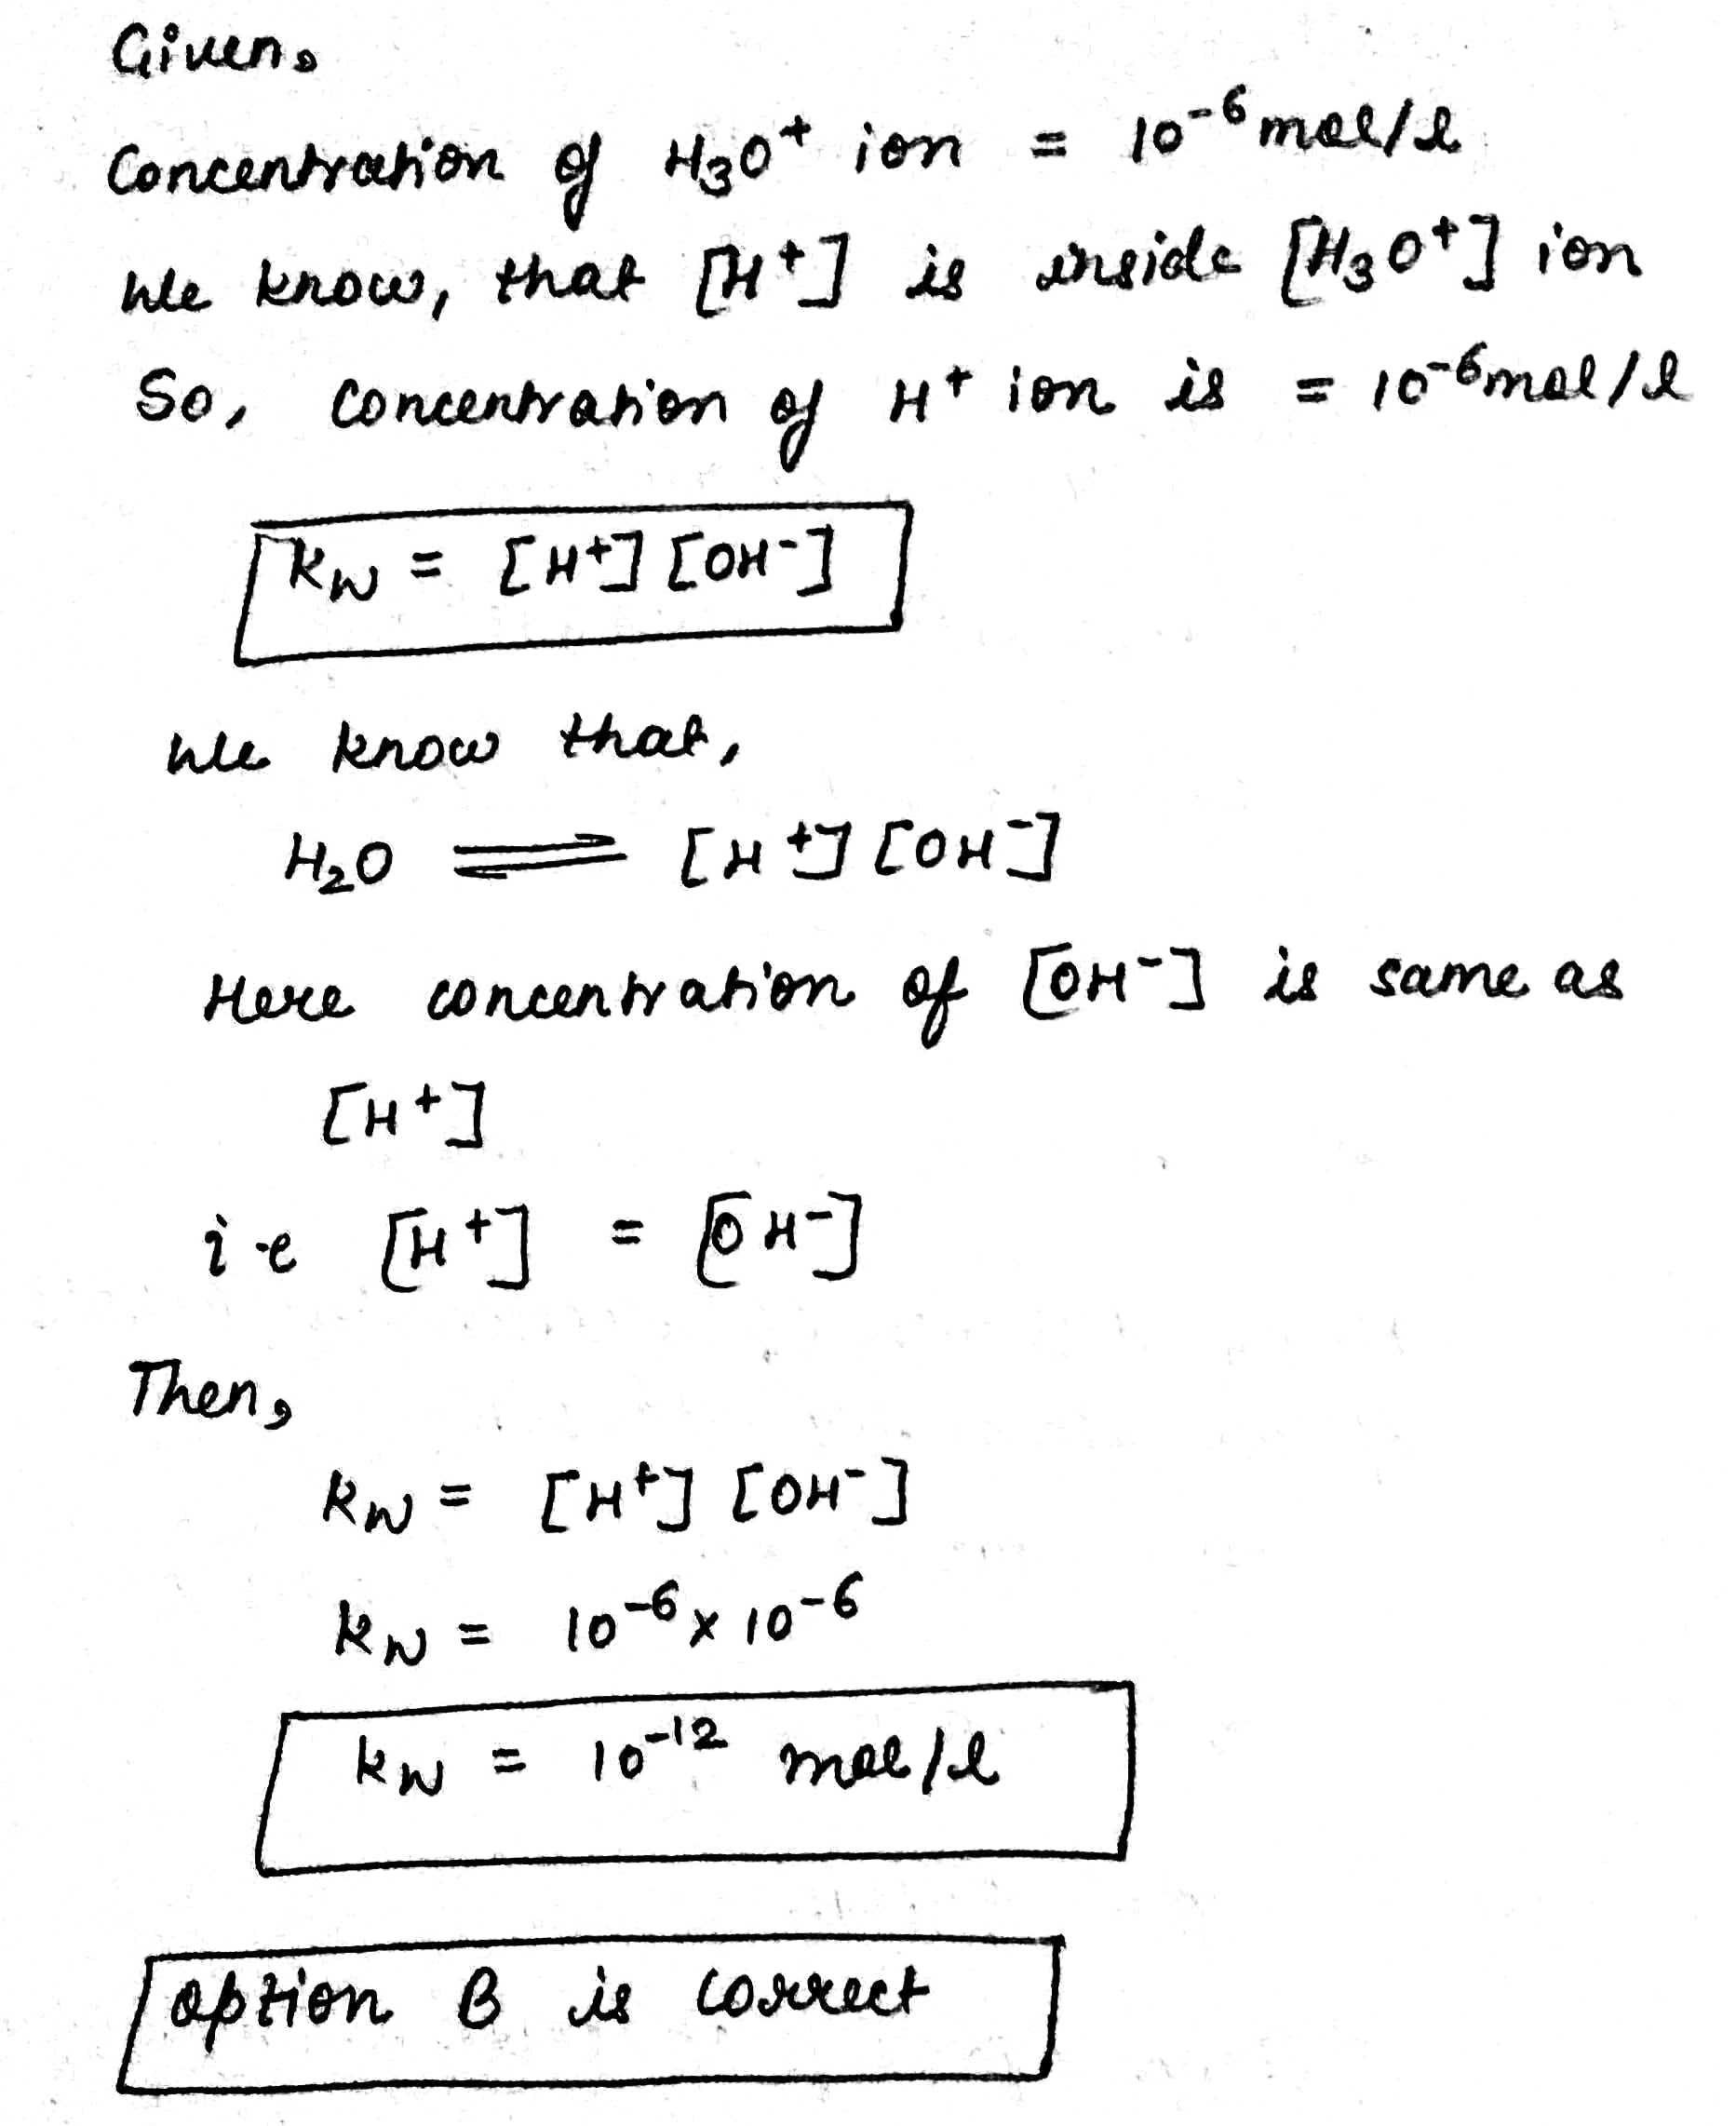 Given,
Concentration of H₃O⁺ ion = 10⁻⁶ mol/l
We know, that [H⁺] is inside [H₃O⁺] ion
So, concentration of H⁺ ion is = 10⁻⁶ mol/l
kw = [H⁺] [OH⁻]
We know that,
H₂O ⇌ [H⁺] [OH⁻]
Here concentration of [OH⁻] is same as
[H⁺]
i.e [H⁺] = [OH⁻]
Then,
kw = [H⁺] [OH⁻]
kw = 10⁻⁶ x 10⁻⁶
kw = 10⁻¹² mol/l
option B is correct